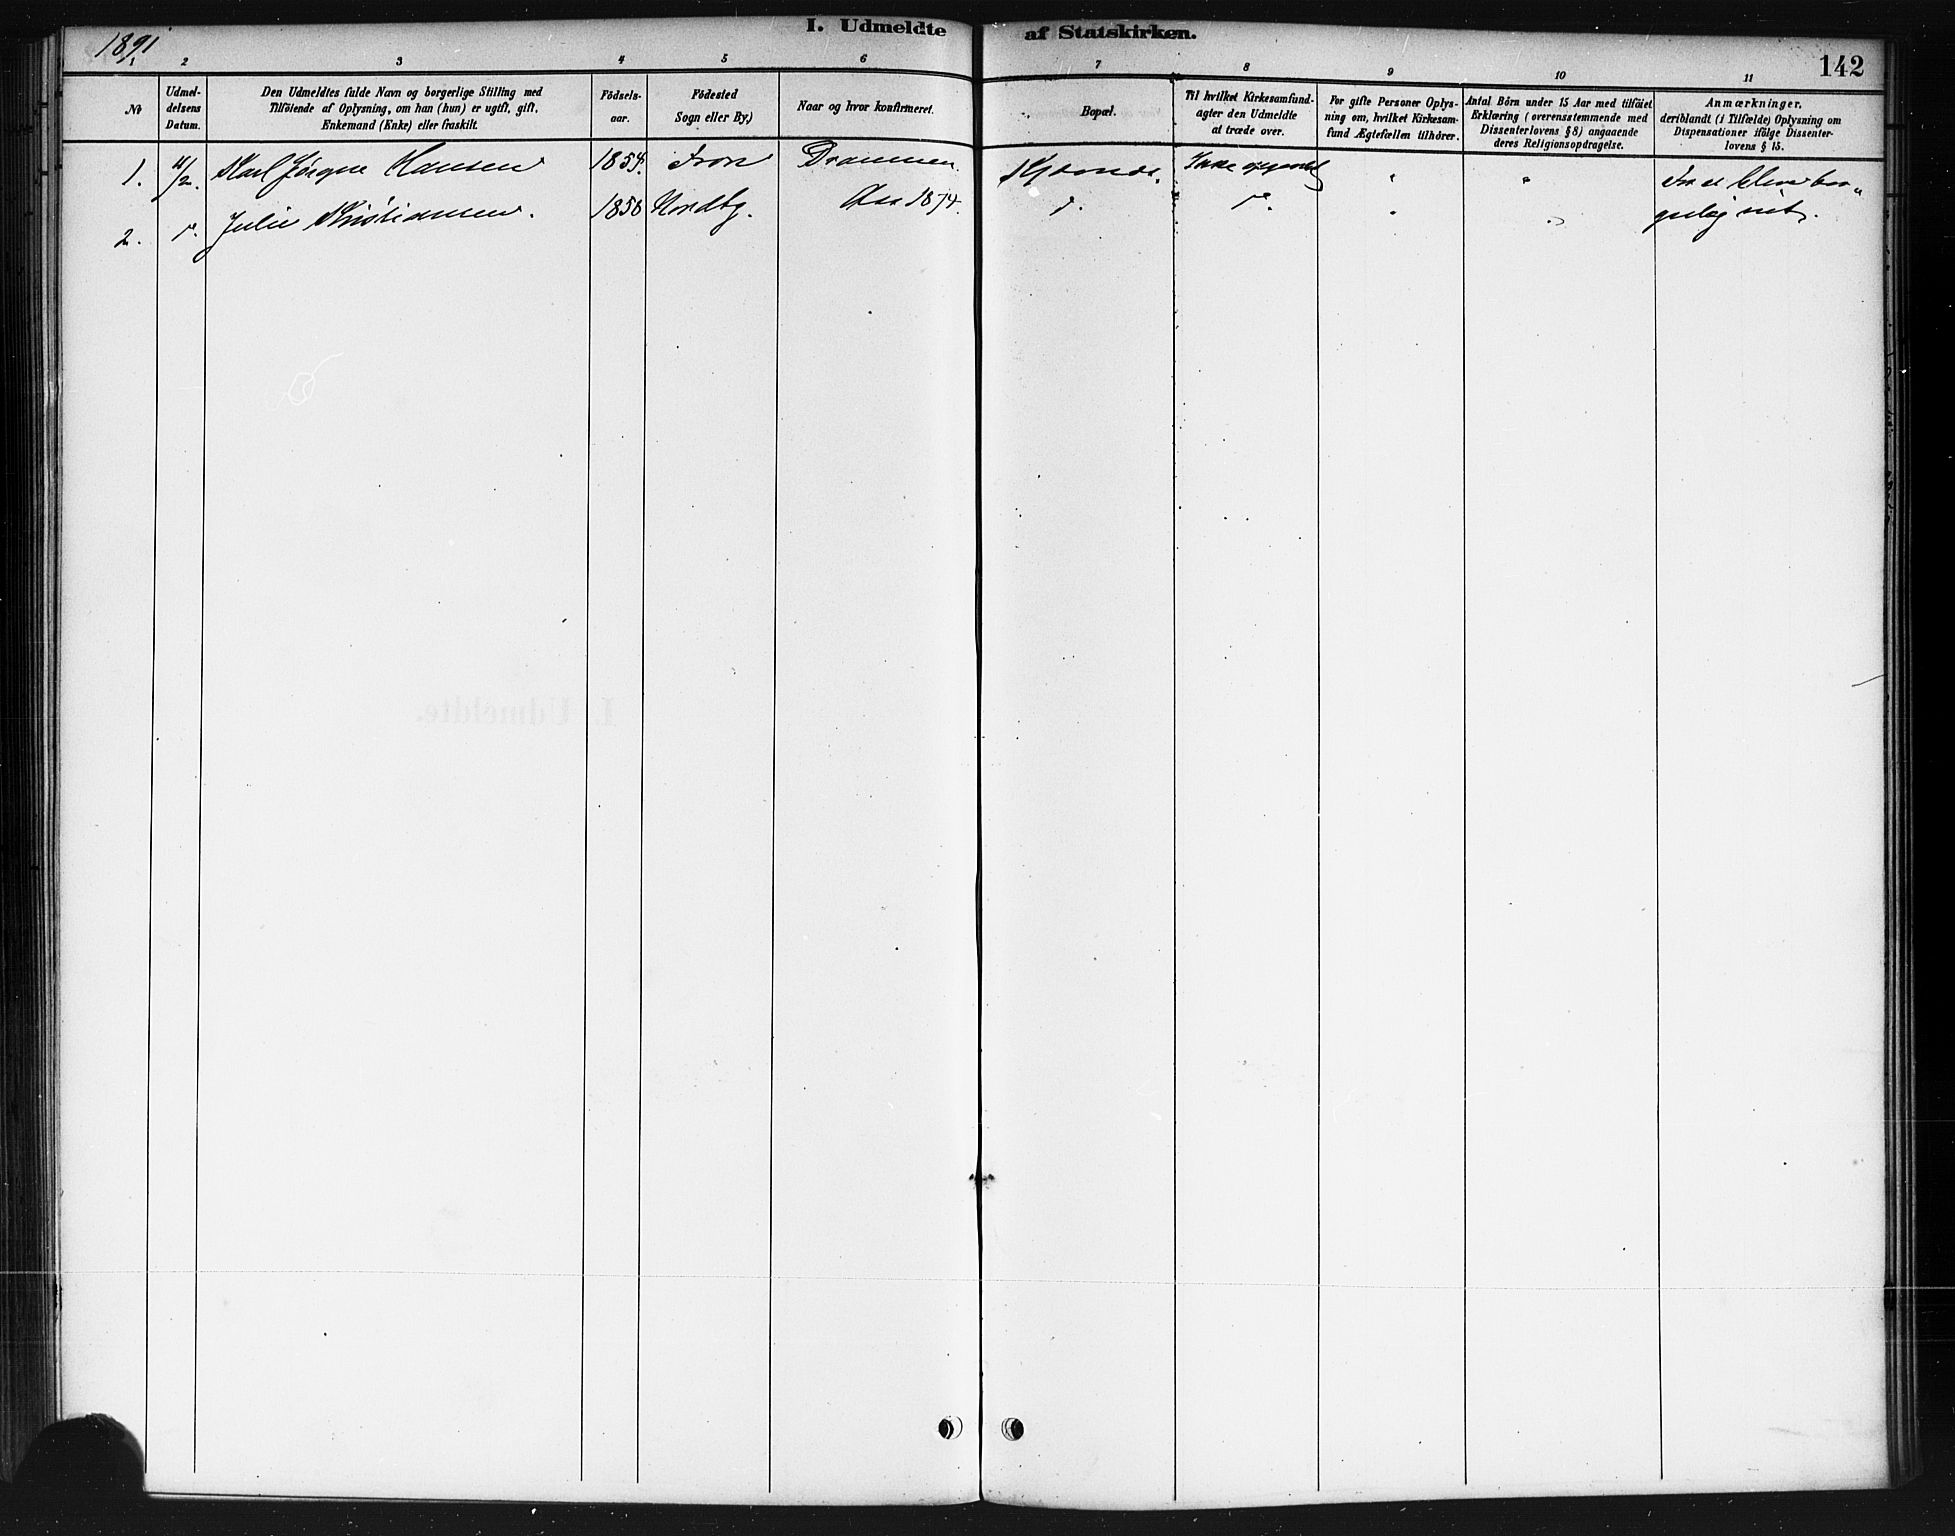 1891
I. Udmeldte af Statskirken.
142
1 2 3 4 5 6 7 8 9 10 11
№
Udmel-
delsens
Datum.
Den Udmeldtes fulde Navn og borgerlige Stilling med
Tilföiende af Oplysning, om han (hun) er ugift, gift,
Enkemand (Enke) eller fraskilt.
Födsels-
aar.
Födested
Sogn eller By.)
Naar og hvor konfirmeret.
Bopæl.
Til hvilket Kirkesamfund-
agter den Udmeldte
at træde over.
For gifte Personer Oplys-
ning om, hvilket Kirkesam-
fund Ægtefællen tilhörer.
Antal Börn under 15 Aar med tilföiet
Erklæring (overensstemmende med
Dissenterlovens § 8) angaaende
deres Religionsopdragelse.
Anmærkninger,
deriblandt (i Tilfælde) Oplysning om
Dispensationer ifölge Dissenter-
lovens § 15.
1. 4/2. Karl Jörgine Hansen 1854. Drammen. Ikke opgivet " "
2. Julie Kristiansen. 1858 Nordbg. Aas 1874. " "